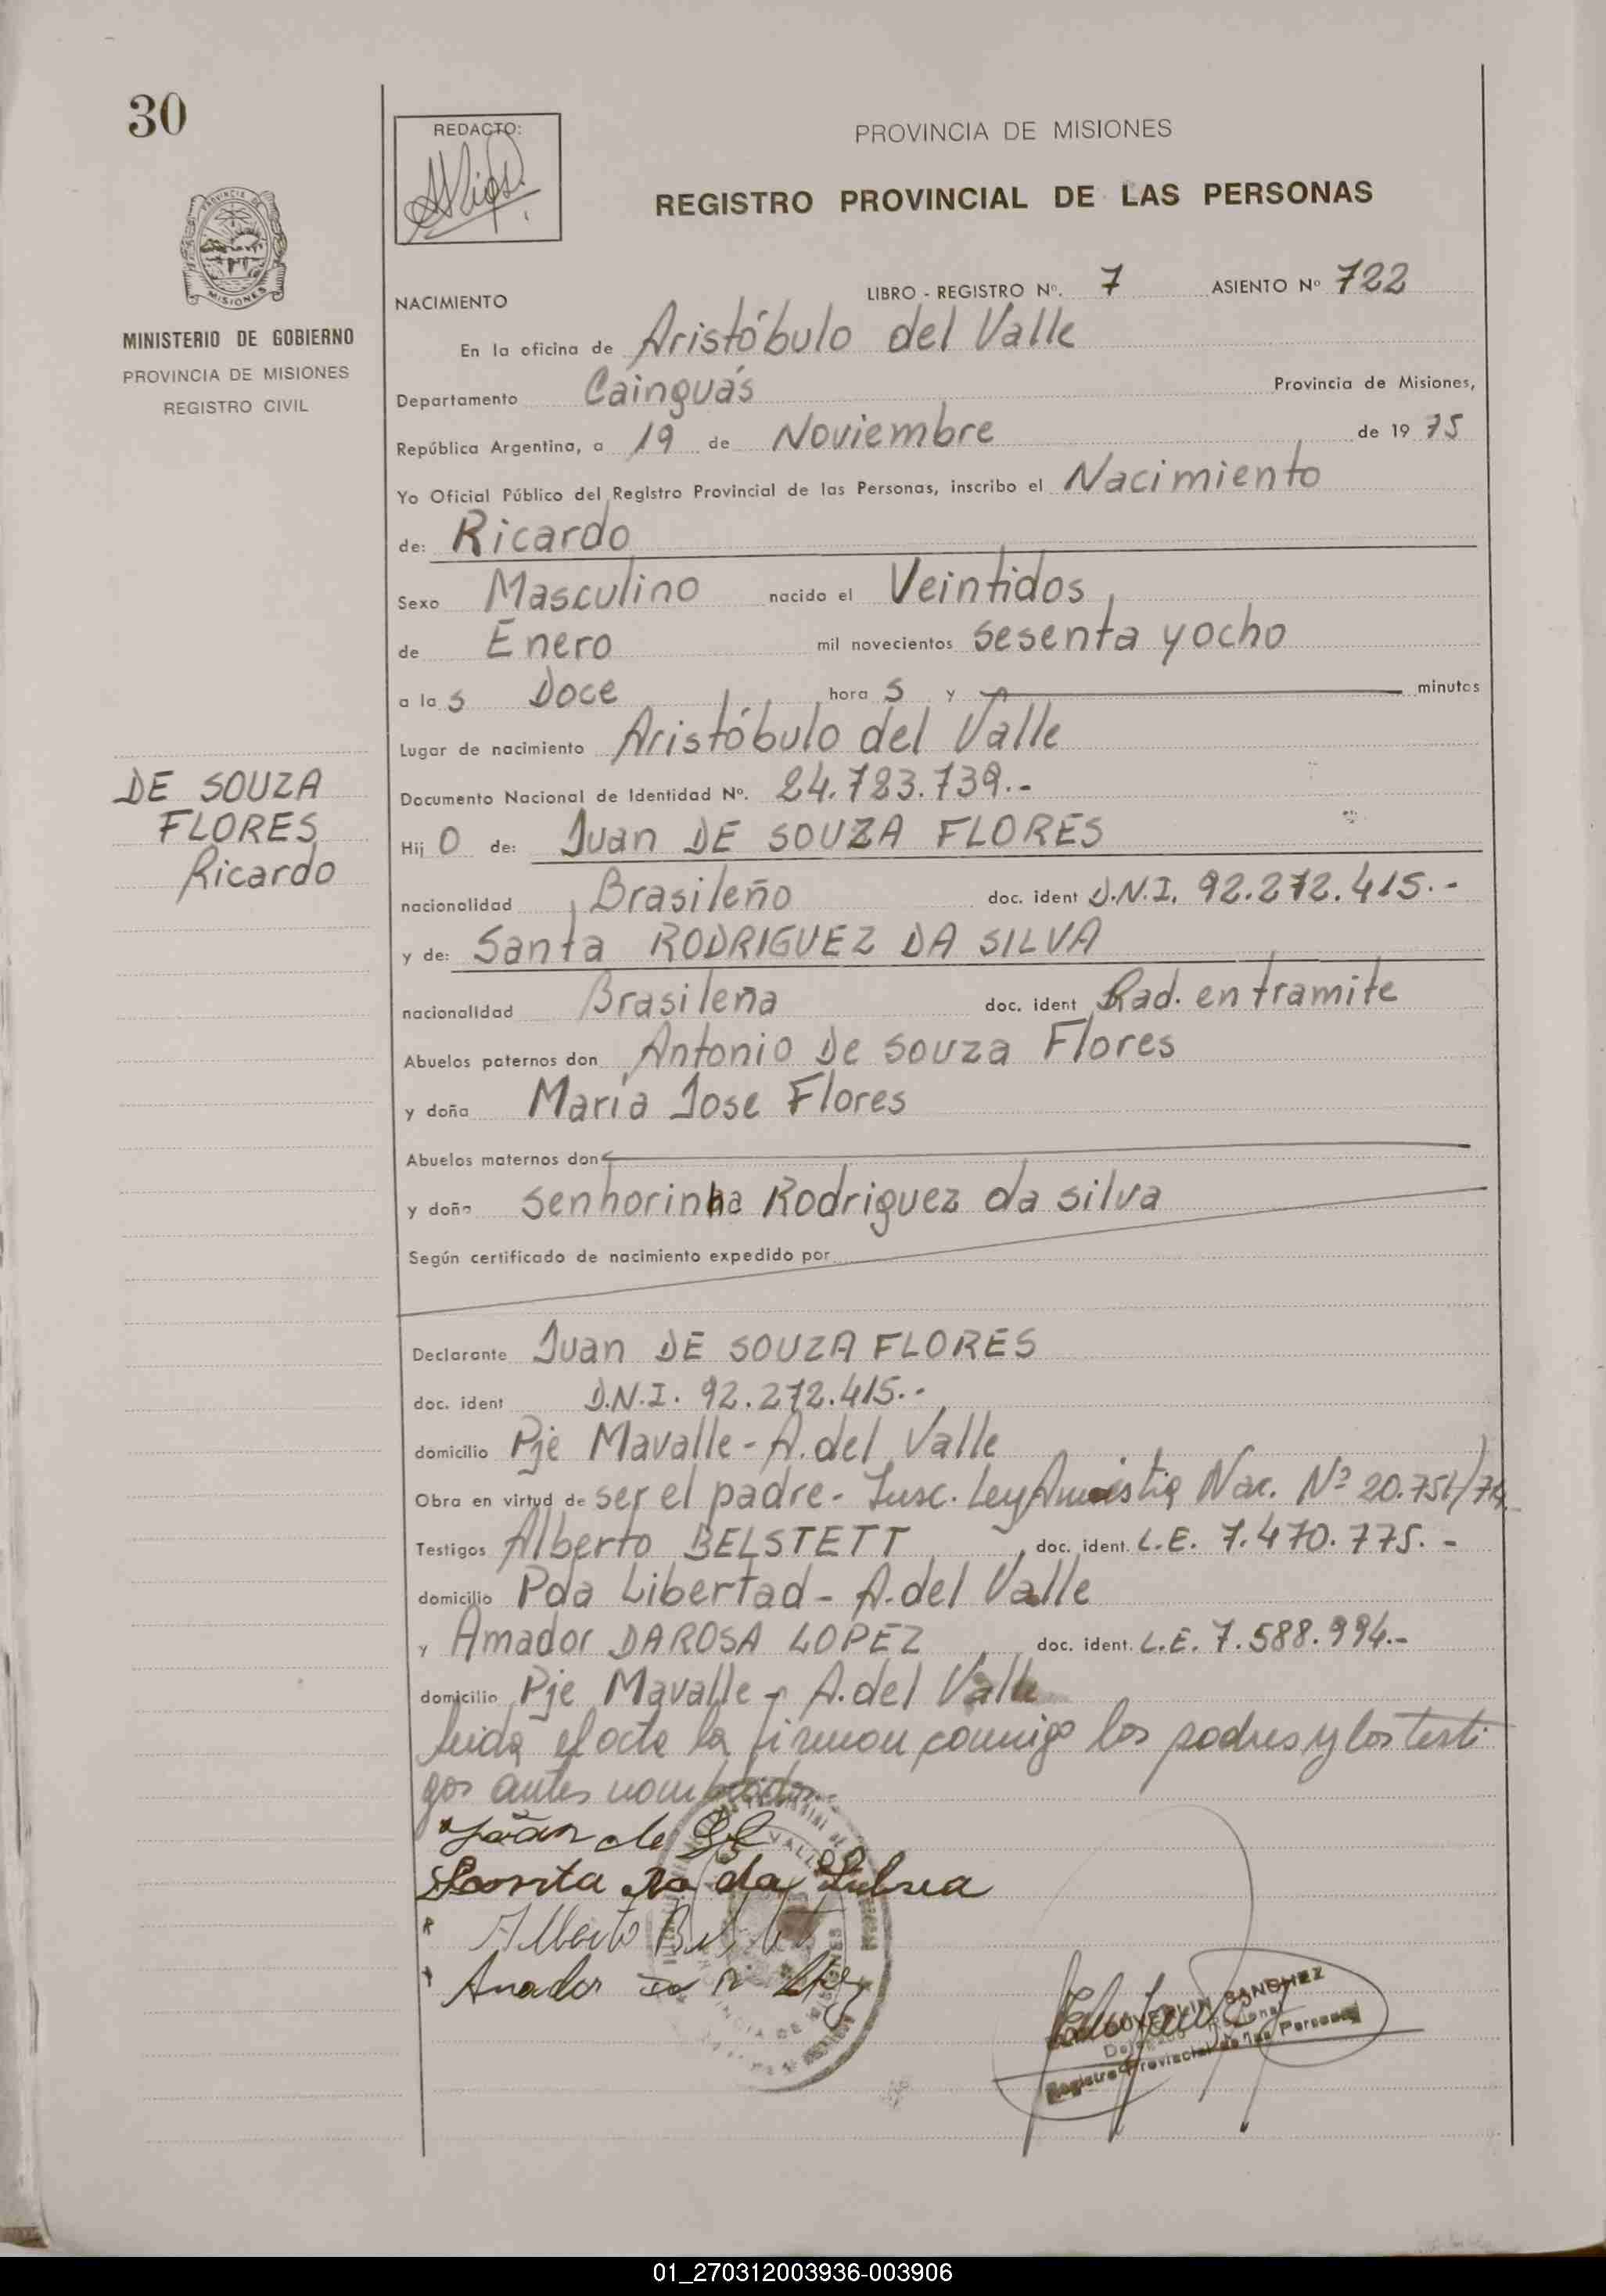 30
REDACTO:
PROVINCIA DE MISIONES
REGISTRO PROVINCIAL DE LAS PERSONAS
PROVINCIA DE
MISIONES
MINISTERIO DE GOBIERNO
PROVINCIA DE MISIONES
REGISTRO CIVIL
NACIMIENTO LIBRO - REGISTRO Nº. 7 ASIENTO Nº 722
En la oficina de Aristóbulo del Valle
Departamento Cainguás Provincia de Misiones,
República Argentina, a 19 de Noviembre de 1975
Yo Oficial Público del Registro Provincial de las Personas, inscribo el Nacimiento
de: Ricardo
Sexo Masculino nacido el Veintidos
de Enero mil novecientos sesenta y ocho
a las Doce horas y minutos
Lugar de nacimiento Aristóbulo del Valle
DE SOUZA
FLORES
Ricardo
Documento Nacional de Identidad Nº. 24.783.739.-
Hijo de: Juan DE SOUZA FLORES
nacionalidad Brasileño doc. ident D.N.I. 92.272.415.-
y de: Santa RODRIGUEZ DA SILVA
nacionalidad Brasileña doc. ident Rad. en tramite
Abuelos paternos don Antonio De souza Flores
y doña María Jose Flores
Abuelos maternos don
y doña Senhorinha Rodriguez da silva
Según certificado de nacimiento expedido por
Declarante Juan DE SOUZA FLORES
doc. ident D.N.I. 92.272.415.-
domicilio Pje Mavalle - A. del Valle
Obra en virtud de ser el padre - Insc. Ley Amnistia Nac. Nº 20.751/74.
Testigos Alberto BELSTETT doc. ident. L.E. 7.470.775.-
domicilio Pda Libertad - A. del Valle
y Amador DAROSA LOPEZ doc. ident. L.E. 7.588.994.-
domicilio Pje Mavalle - A. del Valle
leida el acta la firman conmigo los padres y los testi
gos antes nombrados.
Alberto
Amador
SANCHEZ
Registro Provincial de las Personas
01_270312003936-003906